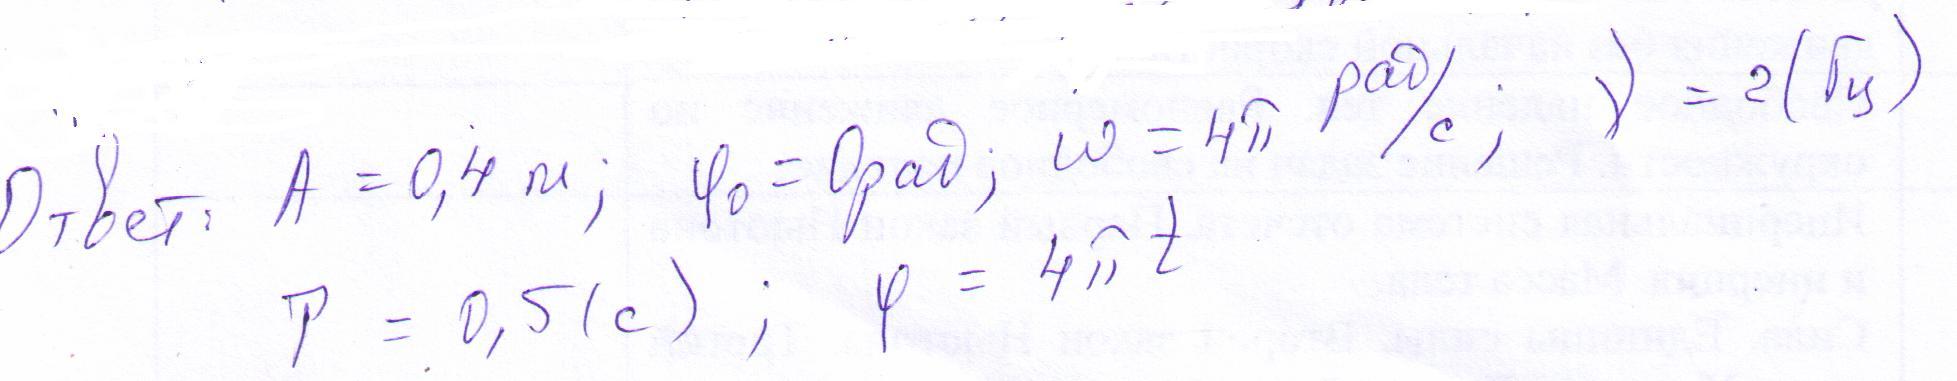 Ответ: A = 0,4 м; φ₀ = 0рад; ω = 4π рад/с; ν = 2(Гц)
T = 0,5(с); φ = 4πt